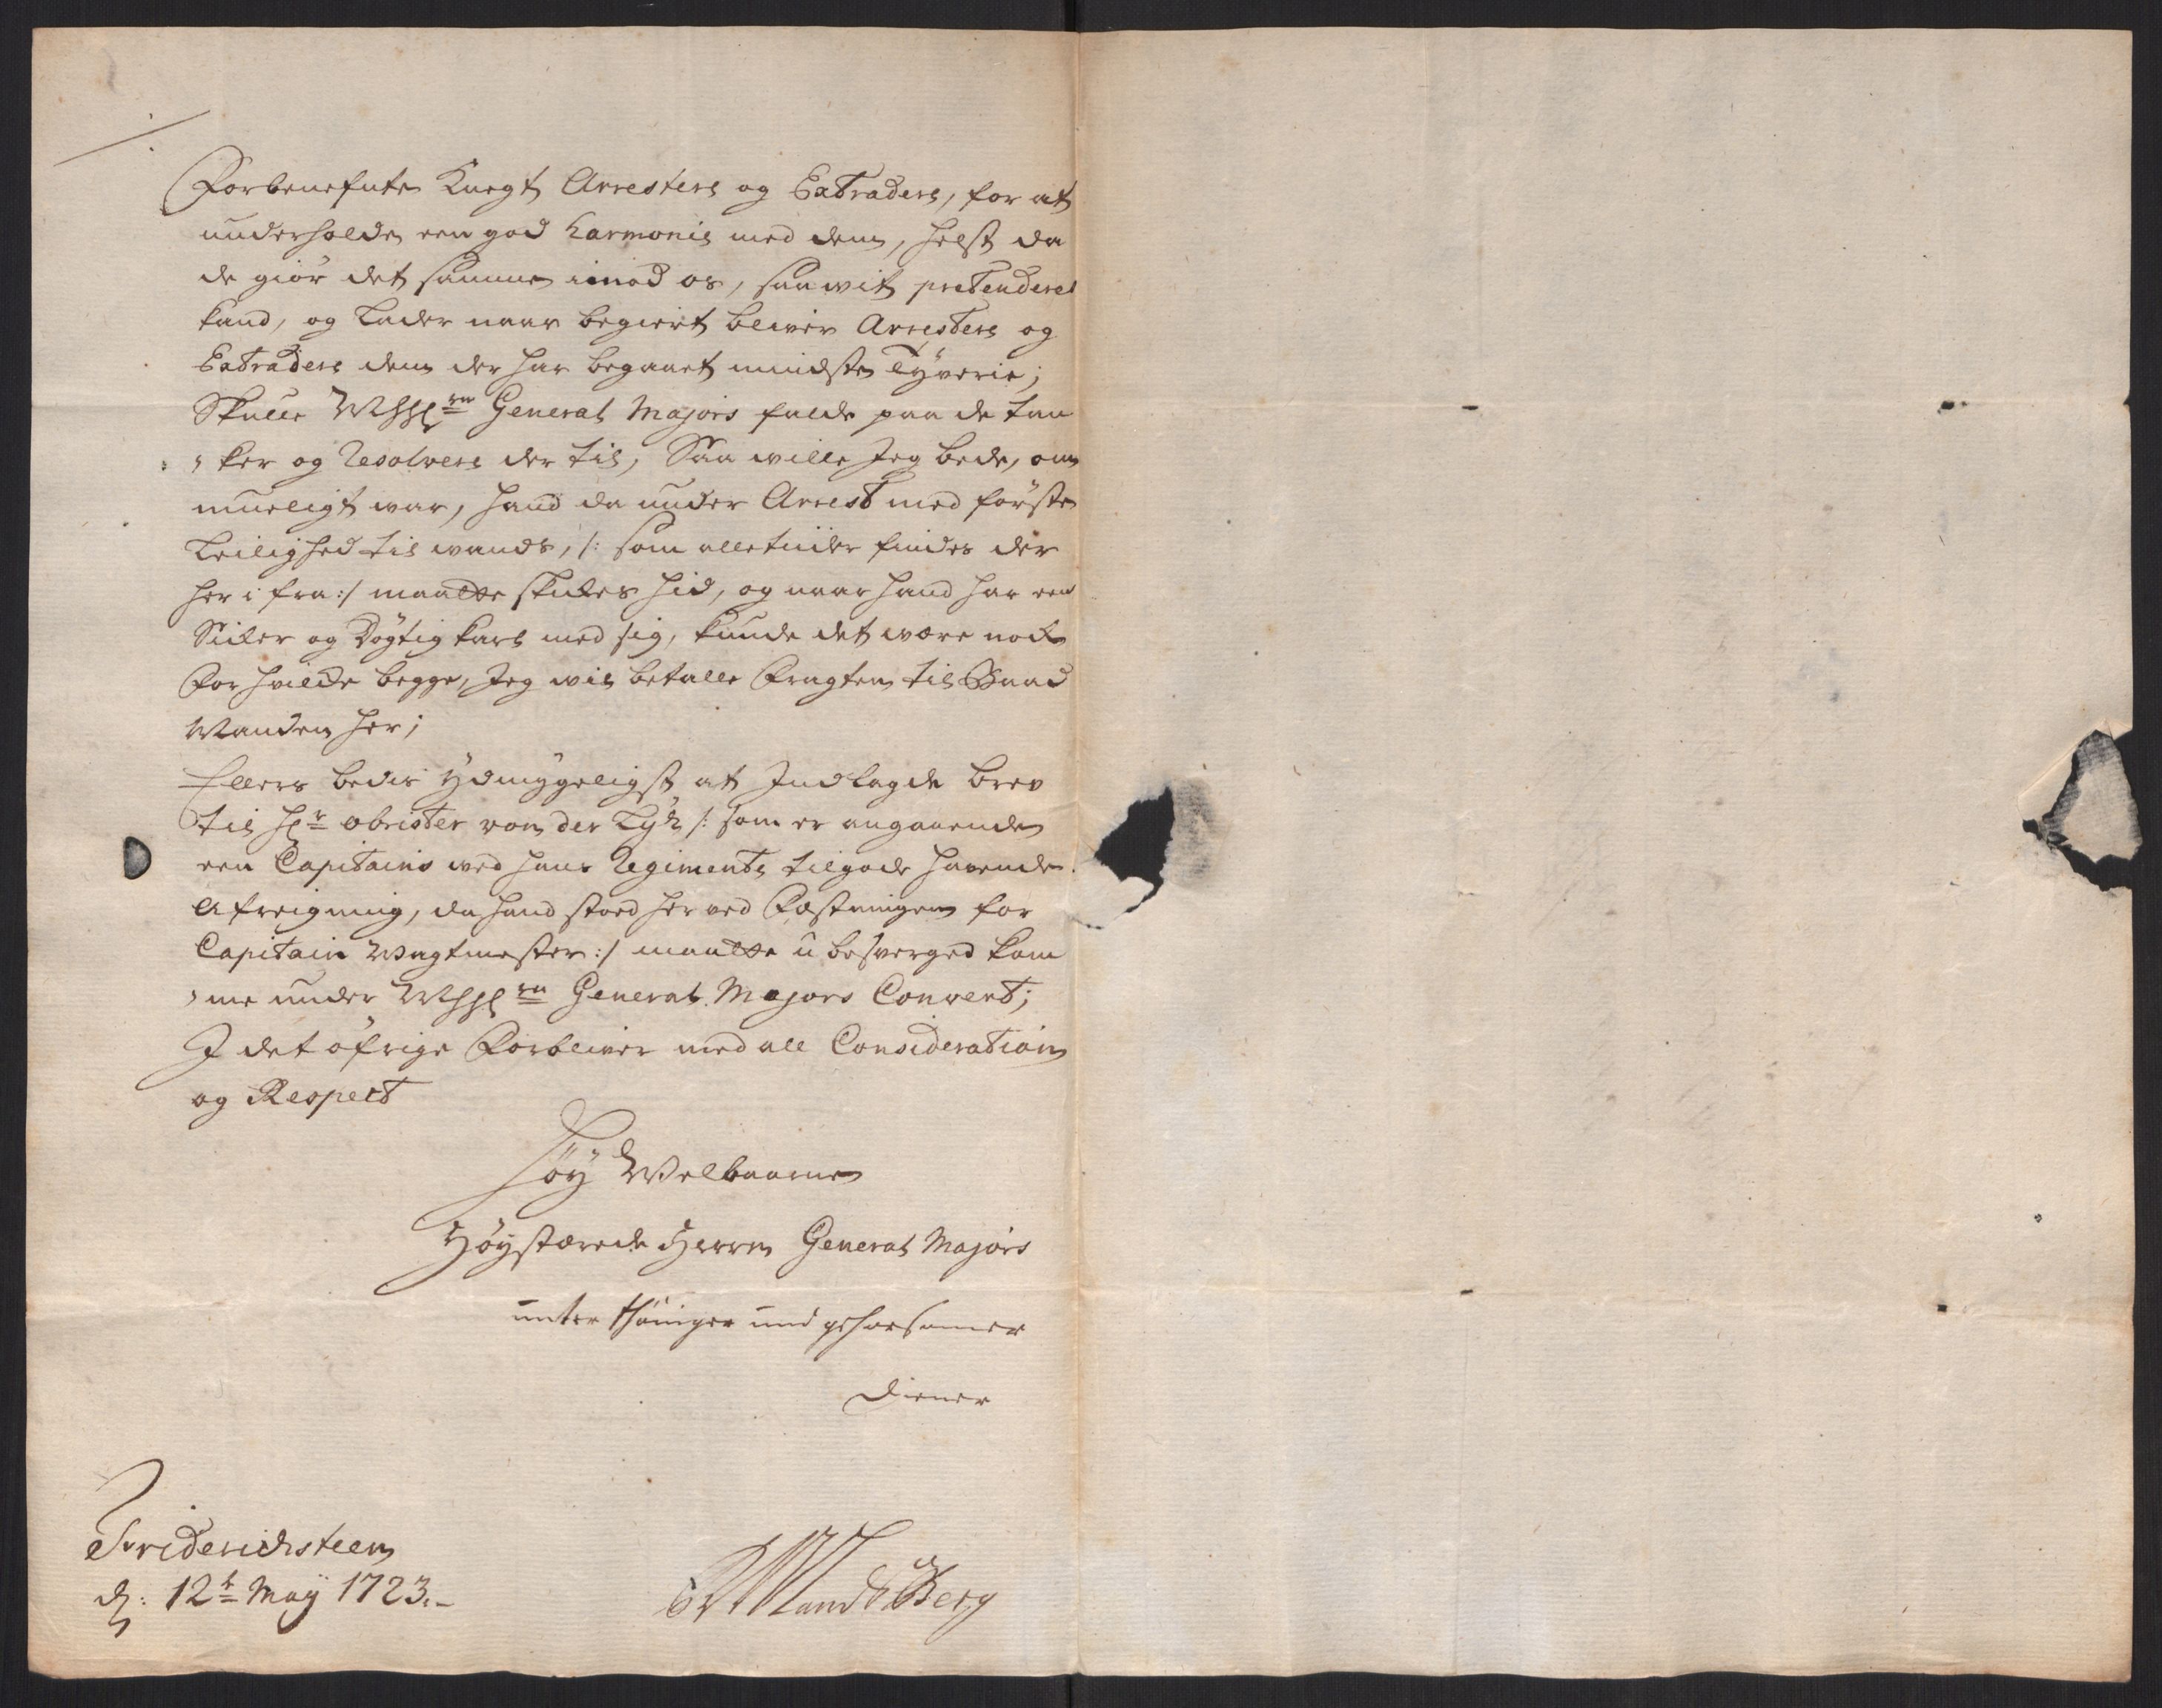 Forbenefnte Knegt Arrestere og Extradere, for at
underholde een god Harmonie med dem, helst da
de giör det samme imod os, saawit pretenderes
kand, og Lader naar begiert bliver Arrestere og
Extradere dem der har begaaet mindste Tyverie;
Skulle WHH(rn) General Majors falde paa de tan
„ker og Resolvere der til, Saa wille Jeg bede, om
mueligt war, hand da under Arrest med förste
Leilighed til wands, /: som alletiider findes der
her i fra :/ maatte skikes hid, og naar hand har een
Siiker og Dögtig karl med sig, kunde det være nok
For hvilke begge, Jeg wil betalle Fragten til Baad
Manden her;
Ellers bedes ydmygeligst, at Indlagde brev
til Hr: obrister von der Lyh /: som er angaaende
een Capitains ved hans Regimente tilgode havende
Afreigning, da hand stoed her ved Fæstningen for
Capitain Wagtmester :/ maatte u besverged kom
„me under WHH(rn) General Majors Convert;
I det öfrige Forbliver med all Consideration
og Respect
Höy Welbaarne
Höystærede Herrn General Majors
unterthäniger und gehorsamer
Diener
Friderichsteen
d: 12t May 1723.
Landsberg